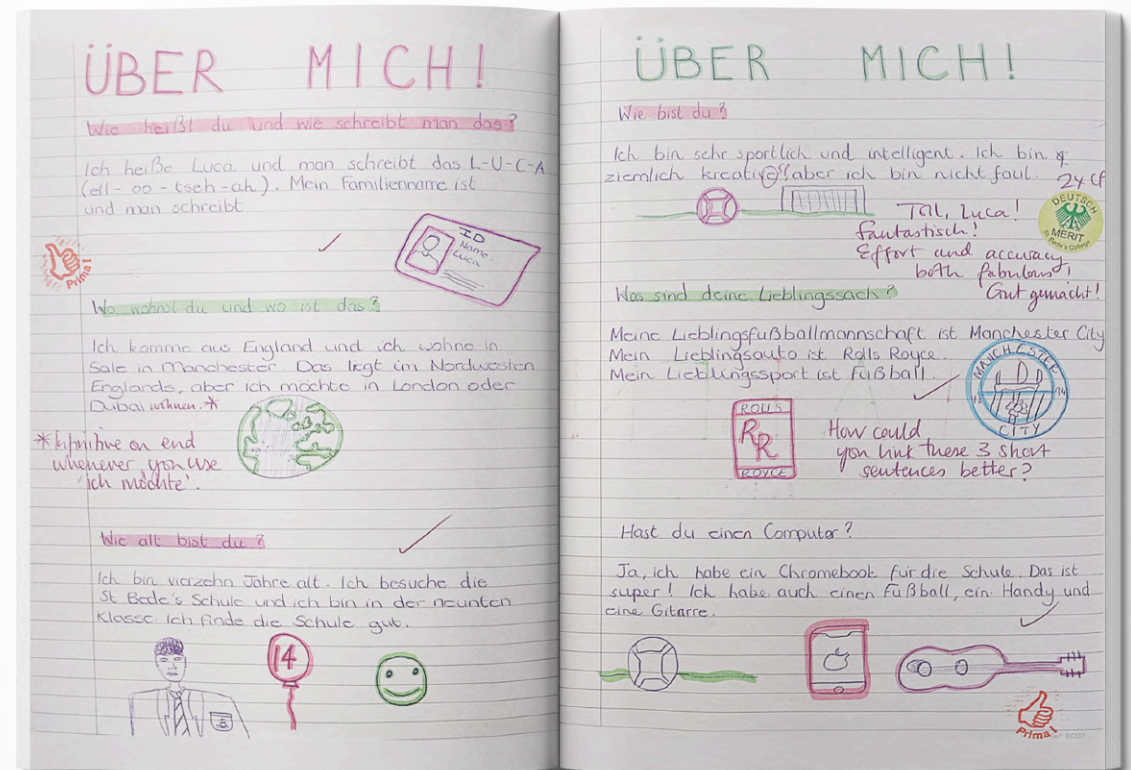 ÜBER MICH!
Wie heißt du und wie schreibt man das?
Ich heiße Luca und man schreibt das L-U-C-A
(ell-oo-tseh-ah). Mein Familienname ist
und man schreibt
ID
Name:
Luca
Prima!
Wo wohnst du und wo ist das?
Ich komme aus England und ich wohne in
Sale in Manchester. Das liegt im Nordwesten
Englands, aber ich möchte in London oder
Dubai wohnen.*
*Infinitive on end
whenever you use
'ich möchte'.
Wie alt bist du?
Ich bin vierzehn Jahre alt. Ich besuche die
St Bede's Schule und ich bin in der neunten
Klasse. Ich finde die Schule gut.
14
ÜBER MICH!
Wie bist du?
Ich bin sehr sportlich und intelligent. Ich bin
ziemlich kreativ, aber ich bin nicht faul.
DEUTSCH
MERIT
St Bede's College
Toll, Luca!
fantastisch!
Effort and accuracy
both fabulous!
Gut gemacht!
Was sind deine Lieblingssach?
Meine Lieblingsfußballmannschaft ist Manchester City
Mein Lieblingsauto ist Rolls Royce.
Mein Lieblingssport ist Fußball.
MANCHESTER
18 94
CITY
ROLLS
RR
ROYCE
How could
you link these 3 short
sentences better?
Hast du einen Computer?
Ja, ich habe ein Chromebook für die Schule. Das ist
super! Ich habe auch einen Fußball, ein Handy und
eine Gitarre.
Prima!